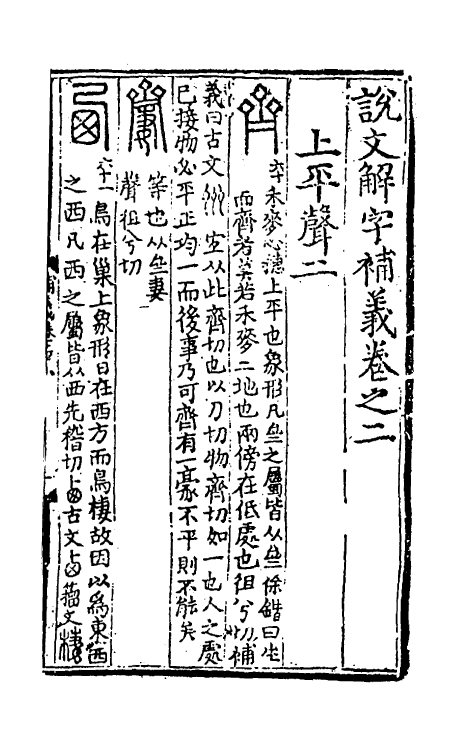 說文解字補義卷之二
上平聲二
六十禾麥吐穗上平也象形凡亝之屬皆从亝徐鍇曰生
而齊者莫若禾麥二地也兩傍在低處也徂兮切補
義曰古文 宜从此齊切也以刀切物齊切如一也人之處
己接物必平正均一而後事乃可齊有一毫不平則不能矣
等也从亝妻
聲徂兮切
六十一鳥在巢上象形日在西方而鳥棲故因以爲東西
之西凡西之屬皆从西先稽切 古文 籀文棲